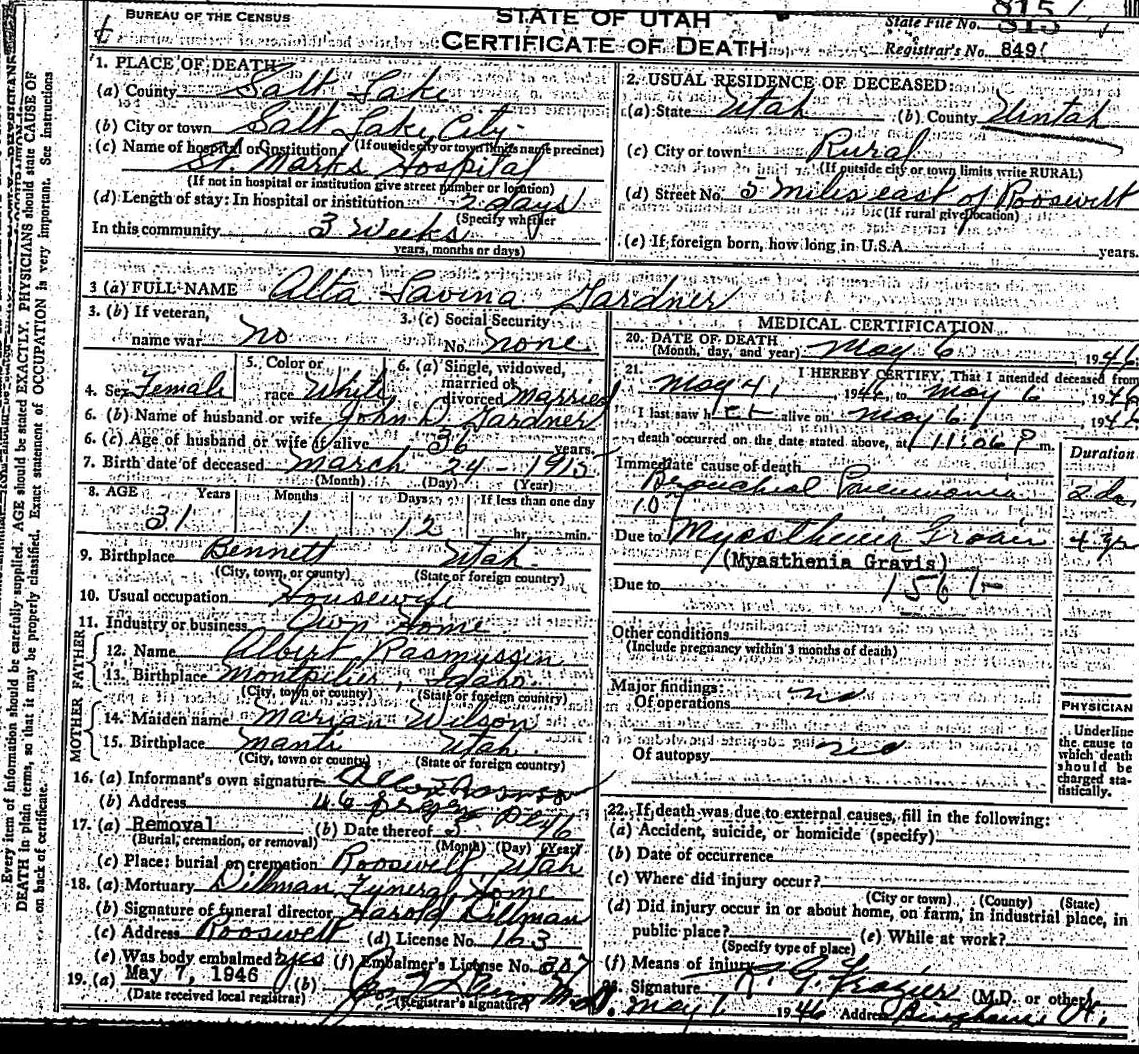 815
BUREAU OF THE CENSUS
STATE OF UTAH
CERTIFICATE OF DEATH
State File No. 815
Registrar's No. 849
Every item of information should be carefully supplied. AGE should be stated EXACTLY. PHYSICIANS should state CAUSE OF
DEATH in plain terms, so that it may be properly classified. Exact statement of OCCUPATION is very important. See instructions
on back of certificate.
1. PLACE OF DEATH
(a) County Salt Lake
(b) City or town Salt Lake City
(If outside city or town limits name precinct)
(c) Name of hospital or institution
St. Marks Hospital
(If not in hospital or institution give street number or location)
(d) Length of stay: In hospital or institution 2 days
(Specify whether
In this community 3 Weeks
years, months or days)
2. USUAL RESIDENCE OF DECEASED:
(a) State Utah (b) County Uintah
(c) City or town Rural
(If outside city or town limits write RURAL)
(d) Street No. 5 miles east of Roosevelt
(If rural give location)
(e) If foreign born, how long in U.S.A. years.
3 (a) FULL NAME Alta Lavina Gardner
3. (b) If veteran,
name war no
3. (c) Social Security
No. none
4. Sex Female
5. Color or
race White
6. (a) Single, widowed,
married or
divorced married
6. (b) Name of husband or wife John D Gardner
6. (c) Age of husband or wife if alive 36 years.
7. Birth date of deceased March 24 - 1915
(Month) (Day) (Year)
8. AGE Years Months Days If less than one day
31 1 12 hr. min.
9. Birthplace Bennett Utah
(City, town, or county) (State of foreign country)
10. Usual occupation Housewife
11. Industry or business Own Home
FATHER
12. Name Albert Rasmussen
13. Birthplace Montpelier, Idaho
(City, town or county) (State or foreign country)
MOTHER
14. Maiden name Marian Wilson
15. Birthplace Manti Utah
(City, town or county) (State or foreign country)
16. (a) Informant's own signature
(b) Address
17. (a) Removal (b) Date thereof 5
(Burial, cremation, or removal) (Month) (Day) (Year)
(c) Place: burial or cremation Roosevelt, Utah
18. (a) Mortuary Dillman Funeral Home
(b) Signature of funeral director Harold Dillman
(c) Address Roosevelt (d) License No. 163
(e) Was body embalmed? yes (f) Embalmer's License No. 307
19. (a) May 7, 1946 (b)
(Date received local registrar) (Registrar's signature)
MEDICAL CERTIFICATION
20. DATE OF DEATH
(Month, day, and year) May 6 1946
21. I HEREBY CERTIFY, That I attended deceased from
May 4, 1946, to May 6, 1946
I last saw her alive on May 6, 1946
death occurred on the date stated above, at 11:06 P m.
Immediate cause of death
Duration
Bronchial Pneumonia 2 da
107
Due to
4 yr
(Myasthenia Gravis)
Due to 156
Other conditions
(Include pregnancy within 3 months of death)
Major findings:
Of operations no
Of autopsy no
PHYSICIAN
Underline
the cause to
which death
should be
charged sta-
tistically.
22. If death was due to external causes, fill in the following:
(a) Accident, suicide, or homicide (specify)
(b) Date of occurrence
(c) Where did injury occur?
(City or town) (County) (State)
(d) Did injury occur in or about home, on farm, in industrial place, in
public place? (e) While at work?
(Specify type of place)
(f) Means of injury
23. Signature Frazier (M.D. or other)
May 1946 Address